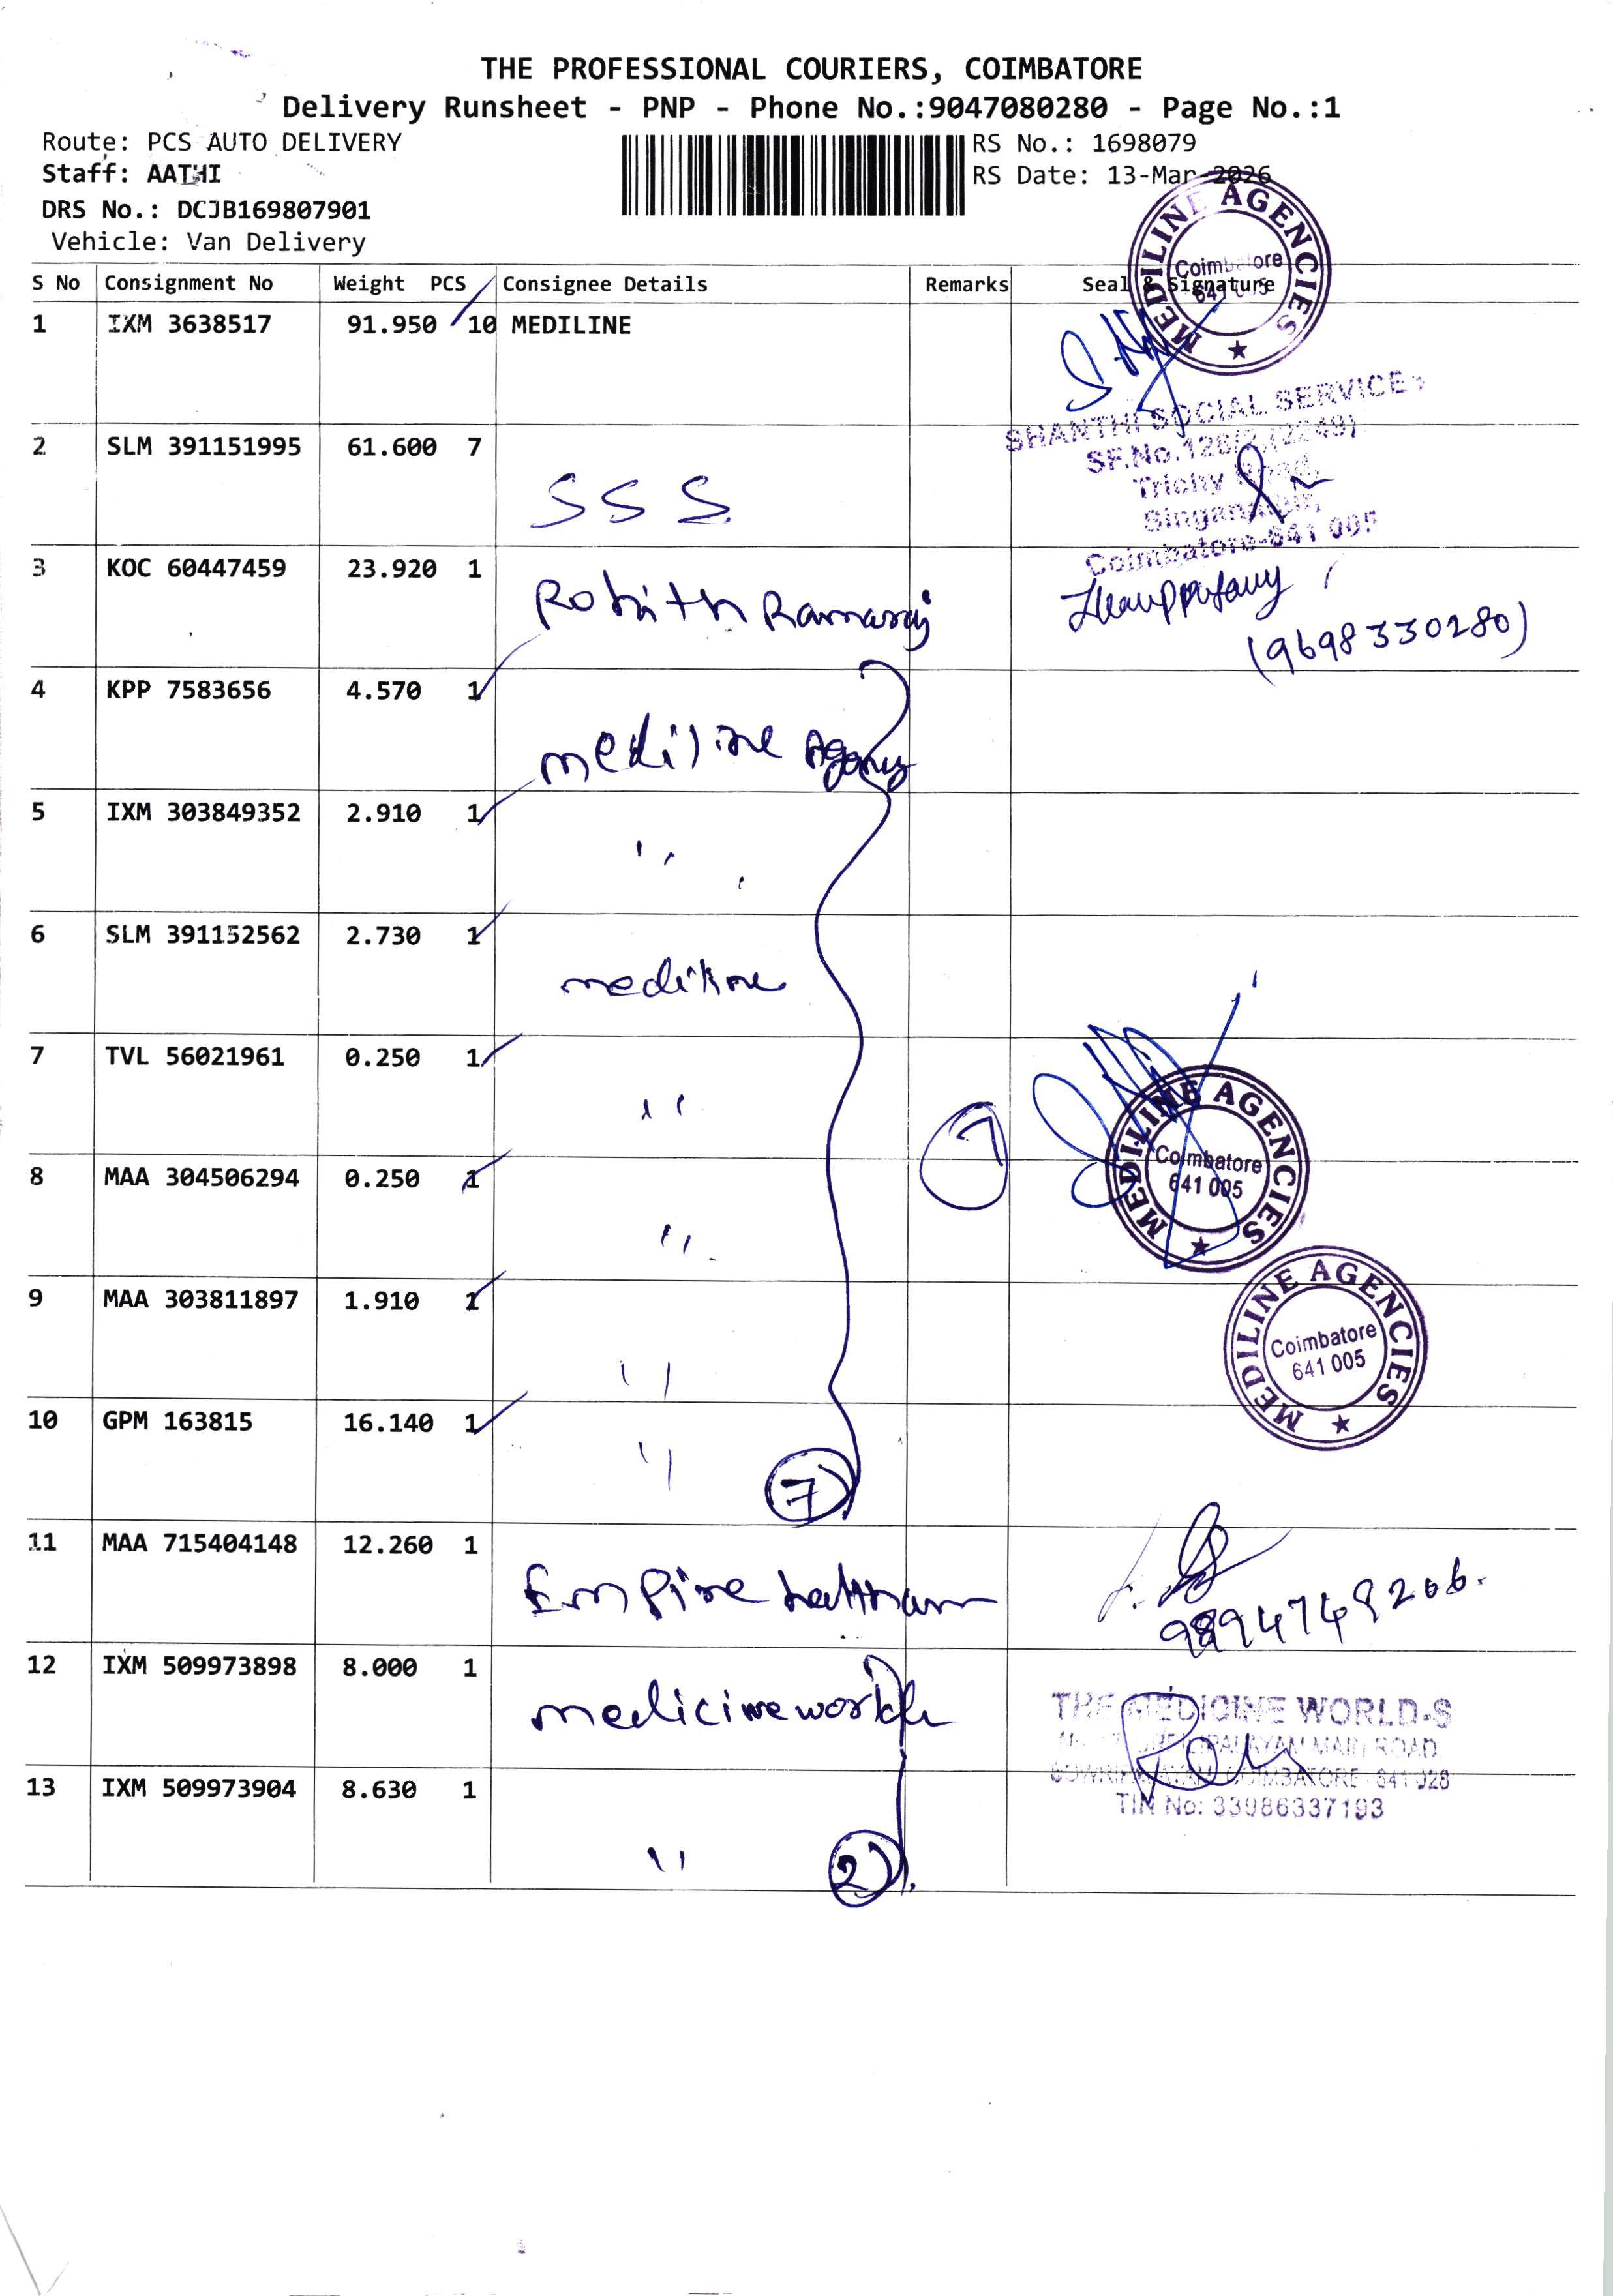 THE PROFESSIONAL COURIERS, COIMBATORE
Delivery Runsheet - PNP - Phone No.:9047080280 - Page No.:1
Route: PCS AUTO DELIVERY
Staff: AATHI
DRS No.: DCJB169807901
Vehicle: Van Delivery
RS No.: 1698079
RS Date: 13-Mar-2026
S No Consignment No Weight PCS Consignee Details Remarks Seal & Signature
1 IXM 3638517 91.950 10 MEDILINE
MEDILINE AGENCIES
Coimbatore
641 005
2 SLM 391151995 61.600 7 SSS
SHANTHI SOCIAL SERVICES
SF.No.128/2,(2249)
Trichy Road,
Singanallur,
Coimbatore-641 005
3 KOC 60447459 23.920 1 Rohith Ramaraj
(9698330280)
4 KPP 7583656 4.570 1 mediline Agency
5 IXM 303849352 2.910 1 "
6 SLM 391152562 2.730 1 mediline
7 TVL 56021961 0.250 1 "
8 MAA 304506294 0.250 1 "
7
MEDILINE AGENCIES
Coimbatore
641 005
9 MAA 303811897 1.910 1 "
MEDILINE AGENCIES
Coimbatore
641 005
10 GPM 163815 16.140 1 "
7
11 MAA 715404148 12.260 1 Empire
9894749266.
12 IXM 509973898 8.000 1 medicine world
THE MEDICINE WORLD-S
MAIN ROAD
COIMBATORE 641 028
TIN No: 33986337193
13 IXM 509973904 8.630 1 "
2